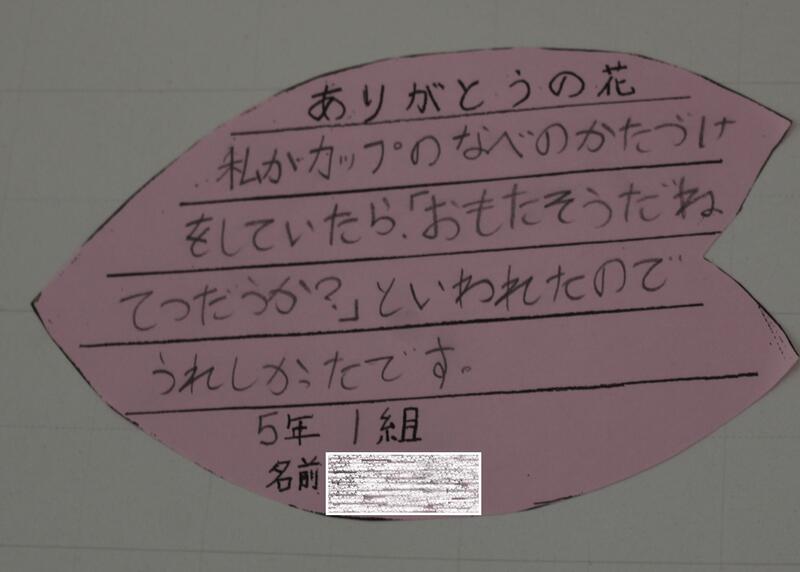 ありがとうの花
私がカップのなべのかたづけ
をしていたら、「おもたそうだね
てつだうか?」といわれたので
うれしかったです。
5年 1組
名前